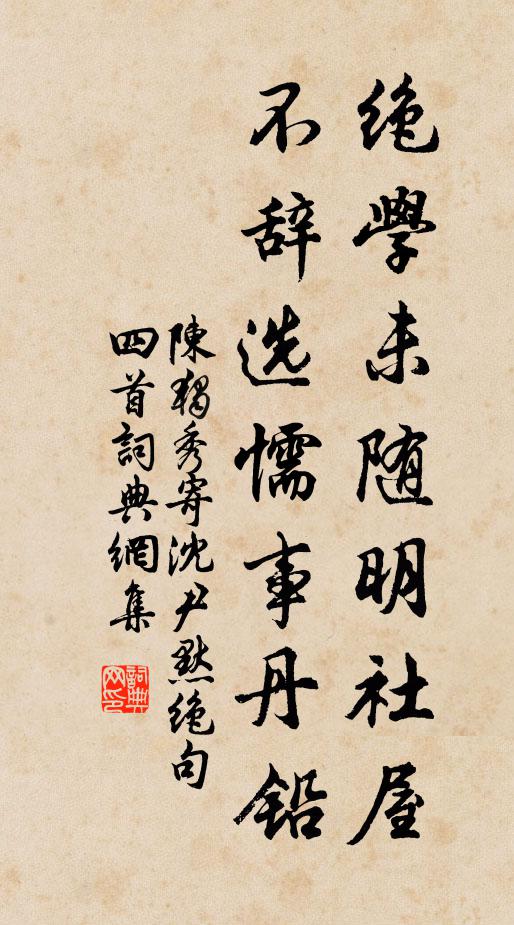 绝學未随明社屋
不辞选懦事丹铅
陳獨秀寄沈尹默绝句
四首詞典網集
詞典
网印